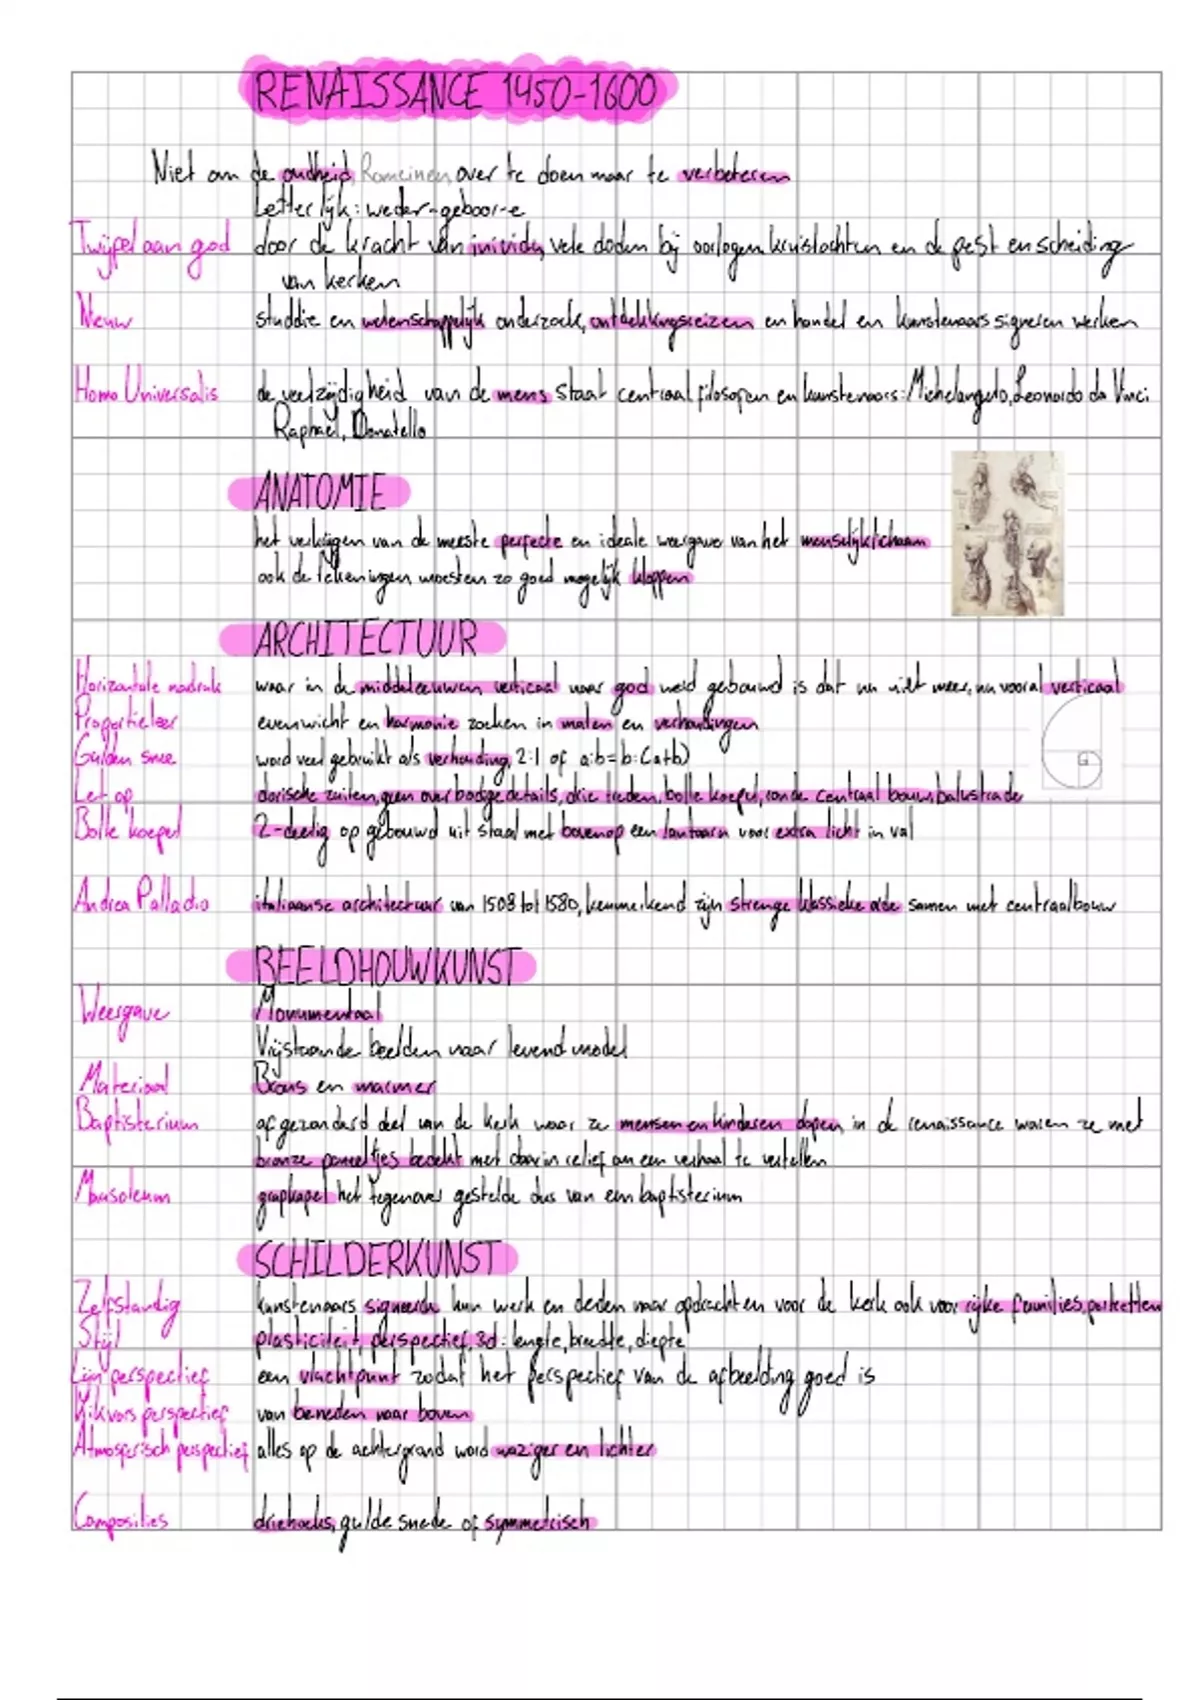 RENAISSANCE 1450-1600
Niet om de oudheid, Romeinen, over te doen maar te verbeteren
Letterlijk: weder-geboor-e
Twijfel aan god door de kracht van inividu, vele doden bij oorlogen, kruistochten en de pest en scheiding
van kerken
Nieuw studdie en wetenschappelijk onderzoek, ontdekkingsreizen en handel en kunstenaars signeren werken
Homo Universalis de veelzijdigheid van de mens staat centraal, filosofen en kunstenaars: Michelangelo, Leonardo da Vinci
Raphael, Donatello
ANATOMIE
het verkrijgen van de meeste perfecte en ideale weergave van het menselijk lichaam
ook de tekeningen moesten zo goed mogelijk kloppen
ARCHITECTUUR
Horizontale nadruk waar in de middeleeuwen verticaal naar god werd gebouwd is dat nu niet meer, nu vooral verticaal
Proportieleer evenwicht en harmonie zoeken in maten en verhoudingen
Gulden snee word veel gebruikt als verhouding, 2:1 of a:b=b:(a+b)
Let op dorische zuilen, geen overbodige details, drie treden, bolle koepel, ronde centraal bouw, balustrade
Bolle koepel 2-deelig op gebouwd uit staal met bovenop een lantaarn voor extra licht in val
Andrea Palladio italiaanse architectuur van 1508 tot 1580, kenmerkend zijn strenge klassieke orde samen met centraalbouw
BEELDHOUWKUNST
Weergave Monumentaal
Vrijstaande beelden naar levend model
Materiaal Brons en marmer
Baptisterium afgezonderd deel van de kerk waar ze mensen en kinderen dopen, in de renaissance waren ze met
bronze paneeltjes bedekt met daarin relief om een verhaal te vertellen
Mausoleum grafkapel het tegenover gestelde dus van een baptisterium
SCHILDERKUNST
Zelfstandig kunstenaars signeerde hun werk en deden naar opdrachten voor de kerk ook voor rijke families, portretten
Stijl plasticiteit, perspectief, 3d: lengte, breedte, diepte
Lijn perspectief een vluchtpunt zodat het perspectief van de afbeelding goed is
Kikvors perspectief van beneden naar boven
Atmosferisch perspectief alles op de achtergrond word waziger en lichter
Composities driehoeks, gulde snede of symmetrisch